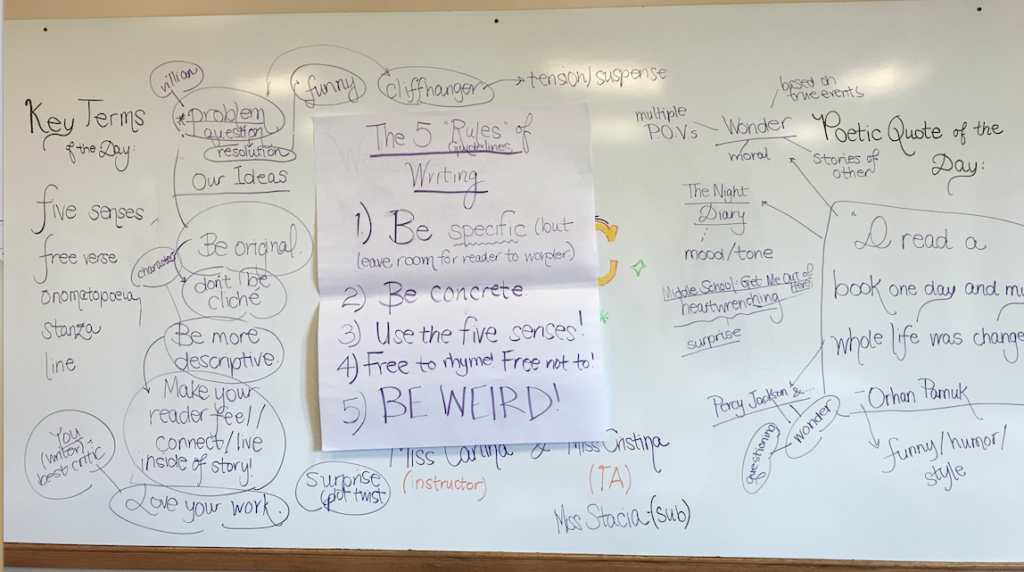 Key Terms
of the Day:
five senses
free verse
onomatopoeia
stanza
line
villian
*problem
question
resolution
funny
cliffhanger
tension/suspense
Our Ideas
Be original.
character
don't be
cliché
Be more
descriptive.
Make your
reader feel/
connect/live
inside of story!
You
(writer)
best critic
Love your work.
Surprise
(plot twist
The 5 "Rules" of
Guidelines
Writing
1) Be specific (but
leave room for reader to wonder.)
2) Be concrete.
3) Use the five senses!
4) Free to rhyme! Free not to!
5) BE WEIRD!
Miss Carlina & Miss Cristina
(instructor)
(TA)
Miss Stacia-(sub)
based on
true events
multiple
P.O.V.s
Wonder
moral
stories of
other
The Night
Diary
mood/tone
Middle School: Get Me Out of
Here!
heartwrenching
surprise
Percy Jackson &...
wonder
questioning
Poetic Quote of the
Day:
"I read a
book one day and my
whole life was change
- Orhan Pamuk
funny/humor/
style